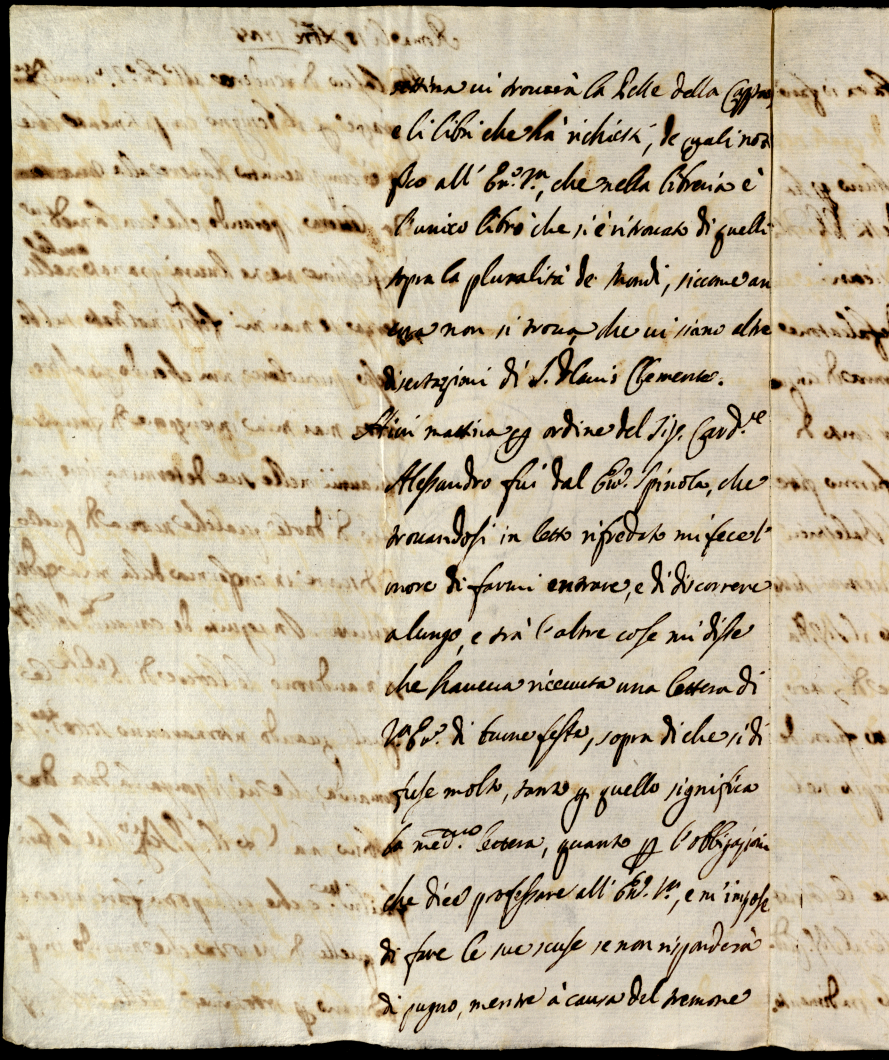 mattina vi trouerà la Pelle della Cappa,
e li libri che hà richiesti, de quali noti
fico all' Em.ª V.ra, che nella libreria è
l'unico libro che si è ritrouato di quelli
sopra la pluralità de Mondi, siccome an
cora non si troua, che ui siano altre
disertazioni di S. Flauio Clemente.
Hieri mattina per ordine del Sig. Card.le
Alessandro fui dal Em.º Spinola, che
trouandosi in letto rifredato mi fece l'
onore di farmi entrare, e di discorrere
a lungo, e trà l'altre cose mi disse
che haueua riceuuta una lettera di
V.ª Em.ª di buone feste, sopra di che si di
fuse molto, tanto per quello significa
la med.ma lettera, quanto per l'obbligazioni
che dice professare all' Em.ª V.ra, e m'impose
di fare le sue scuse se non risponderà
di pugno, mentre à causa del tremore